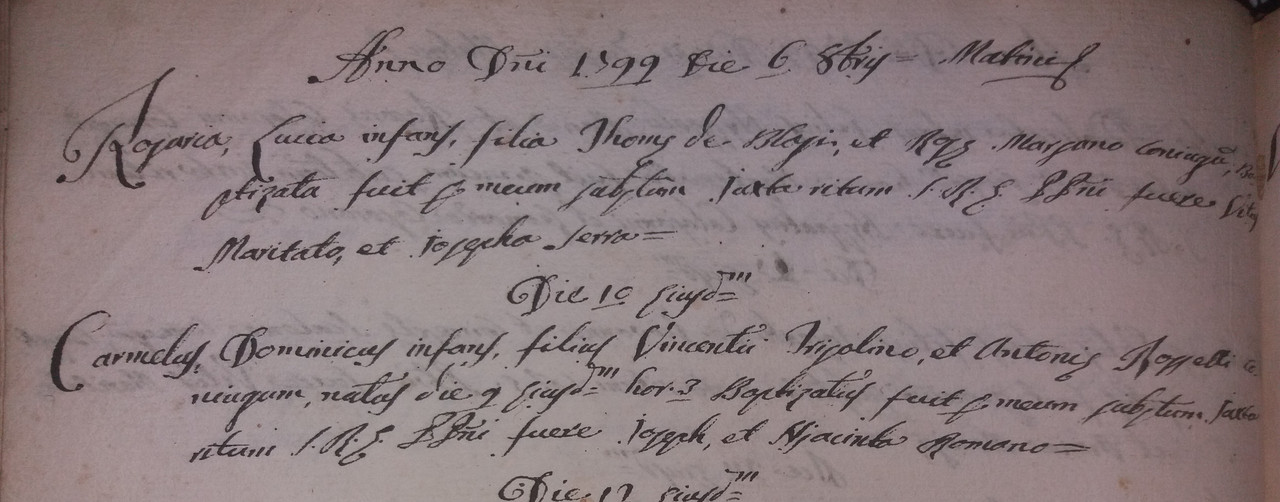 Anno Dñi 1799 Die 6 8bris = Matinis
Rosaria, Lucia infans, filia Thomę de Blasi, et Rosę Marsano coniugũ, Ba
ptizata fuit ꝑ meum subs̃tum Iuxta ritum S. R. E. PP̃ni fuere Vitus
Maritato, et Iosepha Serra =
Die 10 eiusd=m
Carmelus, Dominicus infans, filius Vincentii Trisolino, et Antonię Rosselli Co
niugum, natus die 9 eiusd=m hor. 3 Baptizatus fuit ꝑ meum subs̃tum Iuxta
ritum S. R. E. PP̃ni fuere Ioseph, et Hjacinta Romano =
Die 17 eiusd=m